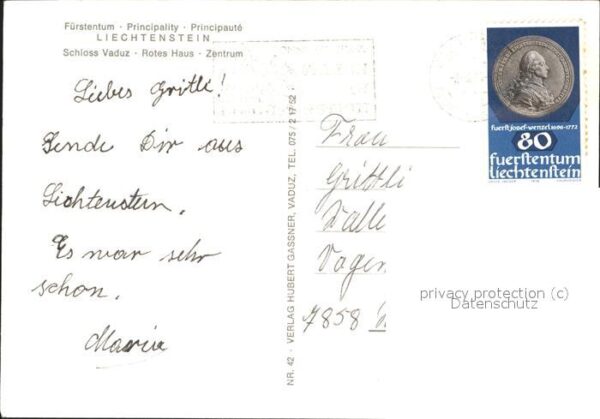 Fürstentum · Principality · Principauté
LIECHTENSTEIN
Schloss Vaduz · Rotes Haus · Zentrum
Liebes Gritli!
Sende Dir aus
Lichtenstein.
Es war sehr
schon.
Maria
NR. 42 · VERLAG HUBERT GASSNER, VADUZ, TEL. 075 / 2 17 52
Frau
Grittli
Walle
Vogen
7858
fuerst josef-wenzel 1696-1772
80
fuerstentum
liechtenstein
privacy protection (c)
Datenschutz